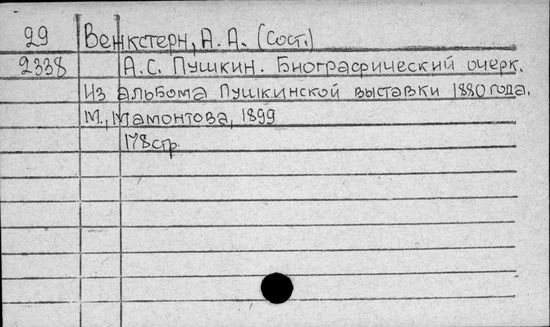 29 Венкстерн, А. А. (Сост.)
2338 А.С. Пушкин. Биографический очерк.
Из альбома Пушкинской выставки 1880 года.
М., Мамонтова, 1899
178 стр.